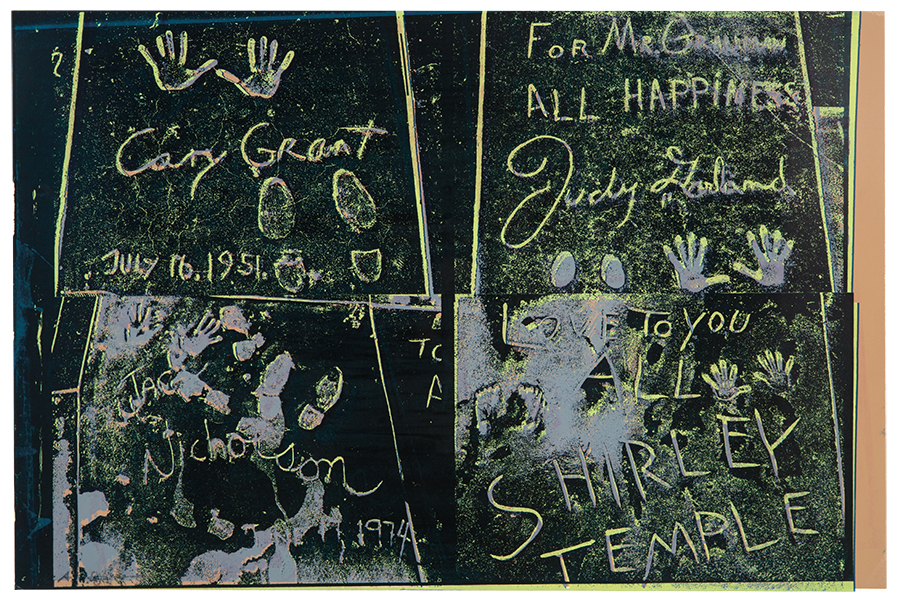 Cary Grant
JULY 16.1951.
FOR MR. GRAUMAN
ALL HAPPINESS
Judy Garland
TO
A
JACK
Nicholson
1974
LOVE TO YOU
ALL
SHIRLEY
TEMPLE